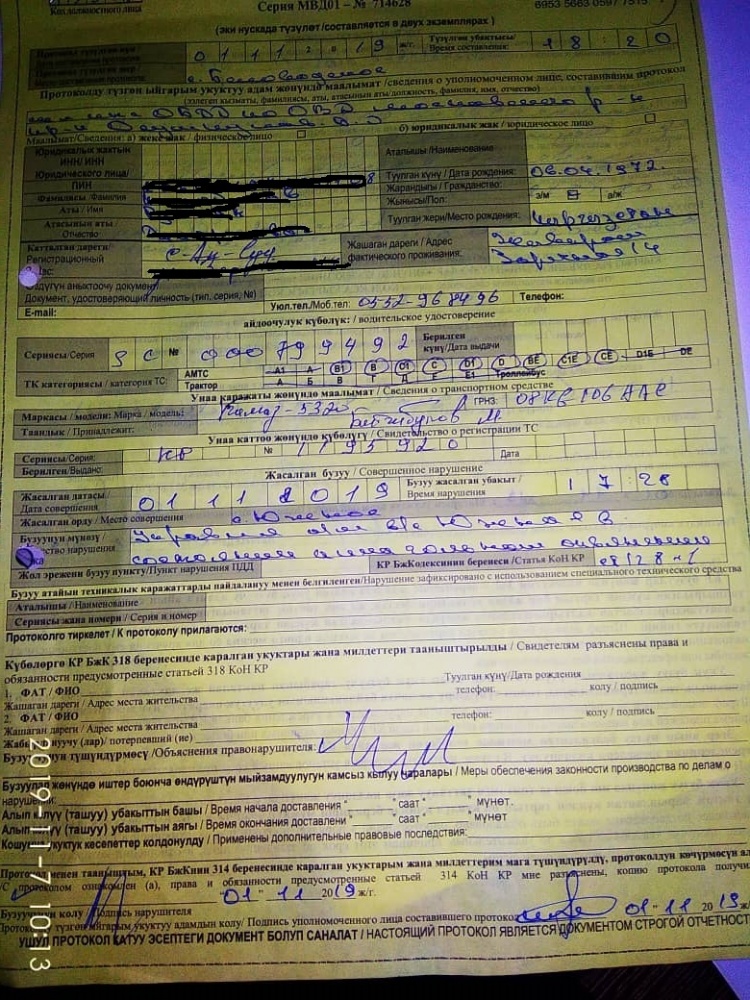 Кызматтык/должностного лица
Серия МВД01 – № 714628
6953 5663 0597 7515
(эки нускада түзүлөт/составляется в двух экземплярах )
0 1 1 1 2 0 1 9 ж/г.
Түзүлгөн убактысы/
Время составления: 1 8 : 2 0
с. Беловодское
Протоколду түзгөн ыйгарым укуктуу адам жөнүндө маалымат /сведения о уполномоченном лице, составившим протокол
(ээлеген кызматы, фамилиясы, аты, атасынын аты должность, фамилия, имя, отчество)
Маалымат/Сведения: а) жеке жак / физическое лицо
б) юридикалык жак / юридическое лицо
Юридикалык жактын
ИНН/ ИНН
Юридического лица/
Аталышы /Наименование
ПИН
Туулган күнү / Дата рождения: 06.04.1972.
Фамилиясы /Фамилия
Жарандыгы / Гражданство:
Аты / Имя
Жынысы/Пол: э/м а/ж
Атасынын аты/
Отчество
Туулган жери/Место рождения: Кыргызстан
Катталган дареги/
Регистрационный
с-Ак-Суу
Жашаган дареги / Адрес
фактического проживания:
Заречная 14
Өздүгүн аныктоочу документ/
Документ, удостоверяющий личность (тип. серия, №)
E-mail:
Уюл.тел./Моб.тел: 0552-967496
Телефон:
айдоочулук күбөлүк: / водительское удостоверение
Сериясы/Серия
№ 000799492
Берилген
күнү/Дата выдачи
ТК категориясы / категория ТС:
АМТС A1 A B1 B C1 C D1 D BE C1E CE D1E DE
Трактор А Б В Г Д Е Е1 Троллейбус
Унаа каражаты жөнүндө маалымат / Сведения о транспортном средстве
Маркасы / модели: Марка / модель: Камаз-5320
ГРНЗ: 08KG 106 AAE
Таандык / Принадлежит:
Унаа каттоо жөнүндө күбөлүгү / Свидетельство о регистрации ТС
Сериясы/Серия:
№ 1795920
Дата
Берилген/Выдано:
Жасалган бузуу / Совершенное нарушение
Жасалган датасы/
Дата совершения 0 1 1 1 2 0 1 9
Бузуу жасалган убакыт /
Время нарушения 1 7 : 28
Жасалган орду / Место совершения с. Южное
Бузуунун мүнөзү/
состоянии алкогольном опьянении
Жол эрежени бузуу пункту/Пункт нарушения ПДД
КР БжКодексинин беренеси /Статья КоН КР
Бузуу атайын техникалык каражаттарды пайдалануу менен белгиленген/Нарушение зафиксировано с использованием специального технического средства
Аталышы /Наименование
Сериясы жана номери / Серия и номер
Протоколго тиркелет / К протоколу прилагаются:
Күбөлөргө КР БжК 318 беренесинде каралган укуктары жана милдеттери таанышты рылды / Свидетелям разъяснены права и
обязанности предусмотренные статьей 318 КоН КР
1. ФАТ / ФИО Туулган күнү/Дата рождения
Жашаган дареги / Адрес места жительства телефон: колу / подпись
2. ФАТ / ФИО
Жашаган дареги / Адрес места жительства телефон: колу / подпись
Жабырлануучу (лар)/ потерпевший (не)
Бузуучунун түшүндүрмөсү /Объяснения правонарушителя:
Бузуулар жөнүндө иштер боюнча өндүрүштүн мыйзамдуулугун камсыз кылуу чаралары / Меры обеспечения законности производства по делам о
нарушении:
Алып келүү (ташуу) убакыттын башы / Время начала доставления " саат " мүнөт.
Алып келүү (ташуу) убакыттын аягы / Время окончания доставления " саат " мүнөт
Кошумча укуктук кесепеттер колдонулду / Применены дополнительные правовые последствия:
Протокол менен тааныштым, КР БжКнин 314 беренесинде каралган укуктарым жана милдеттерим мага түшүндүрүлдү, протоколдун көчүрмөсүн ал
/С протоколом ознакомлен (а), права и обязанности предусмотренные статьей 314 КоН КР мне разъяснены, копию протокола получи
"01" 11 2019 ж/г.
Бузуучунун колу / Подпись нарушителя
Протокол түзгөн ыйгарым укуктуу адамдын колу/ Подпись уполномоченного лица составившего протокол "01" 11 2019 ж/
УШУЛ ПРОТОКОЛ КАТУУ ЭСЕПТЕГИ ДОКУМЕНТ БОЛУП САНАЛАТ / НАСТОЯЩИЙ ПРОТОКОЛ ЯВЛЯЕТСЯ ДОКУМЕНТОМ СТРОГОЙ ОТЧЕТНОСТ
2019-11-7 10:13